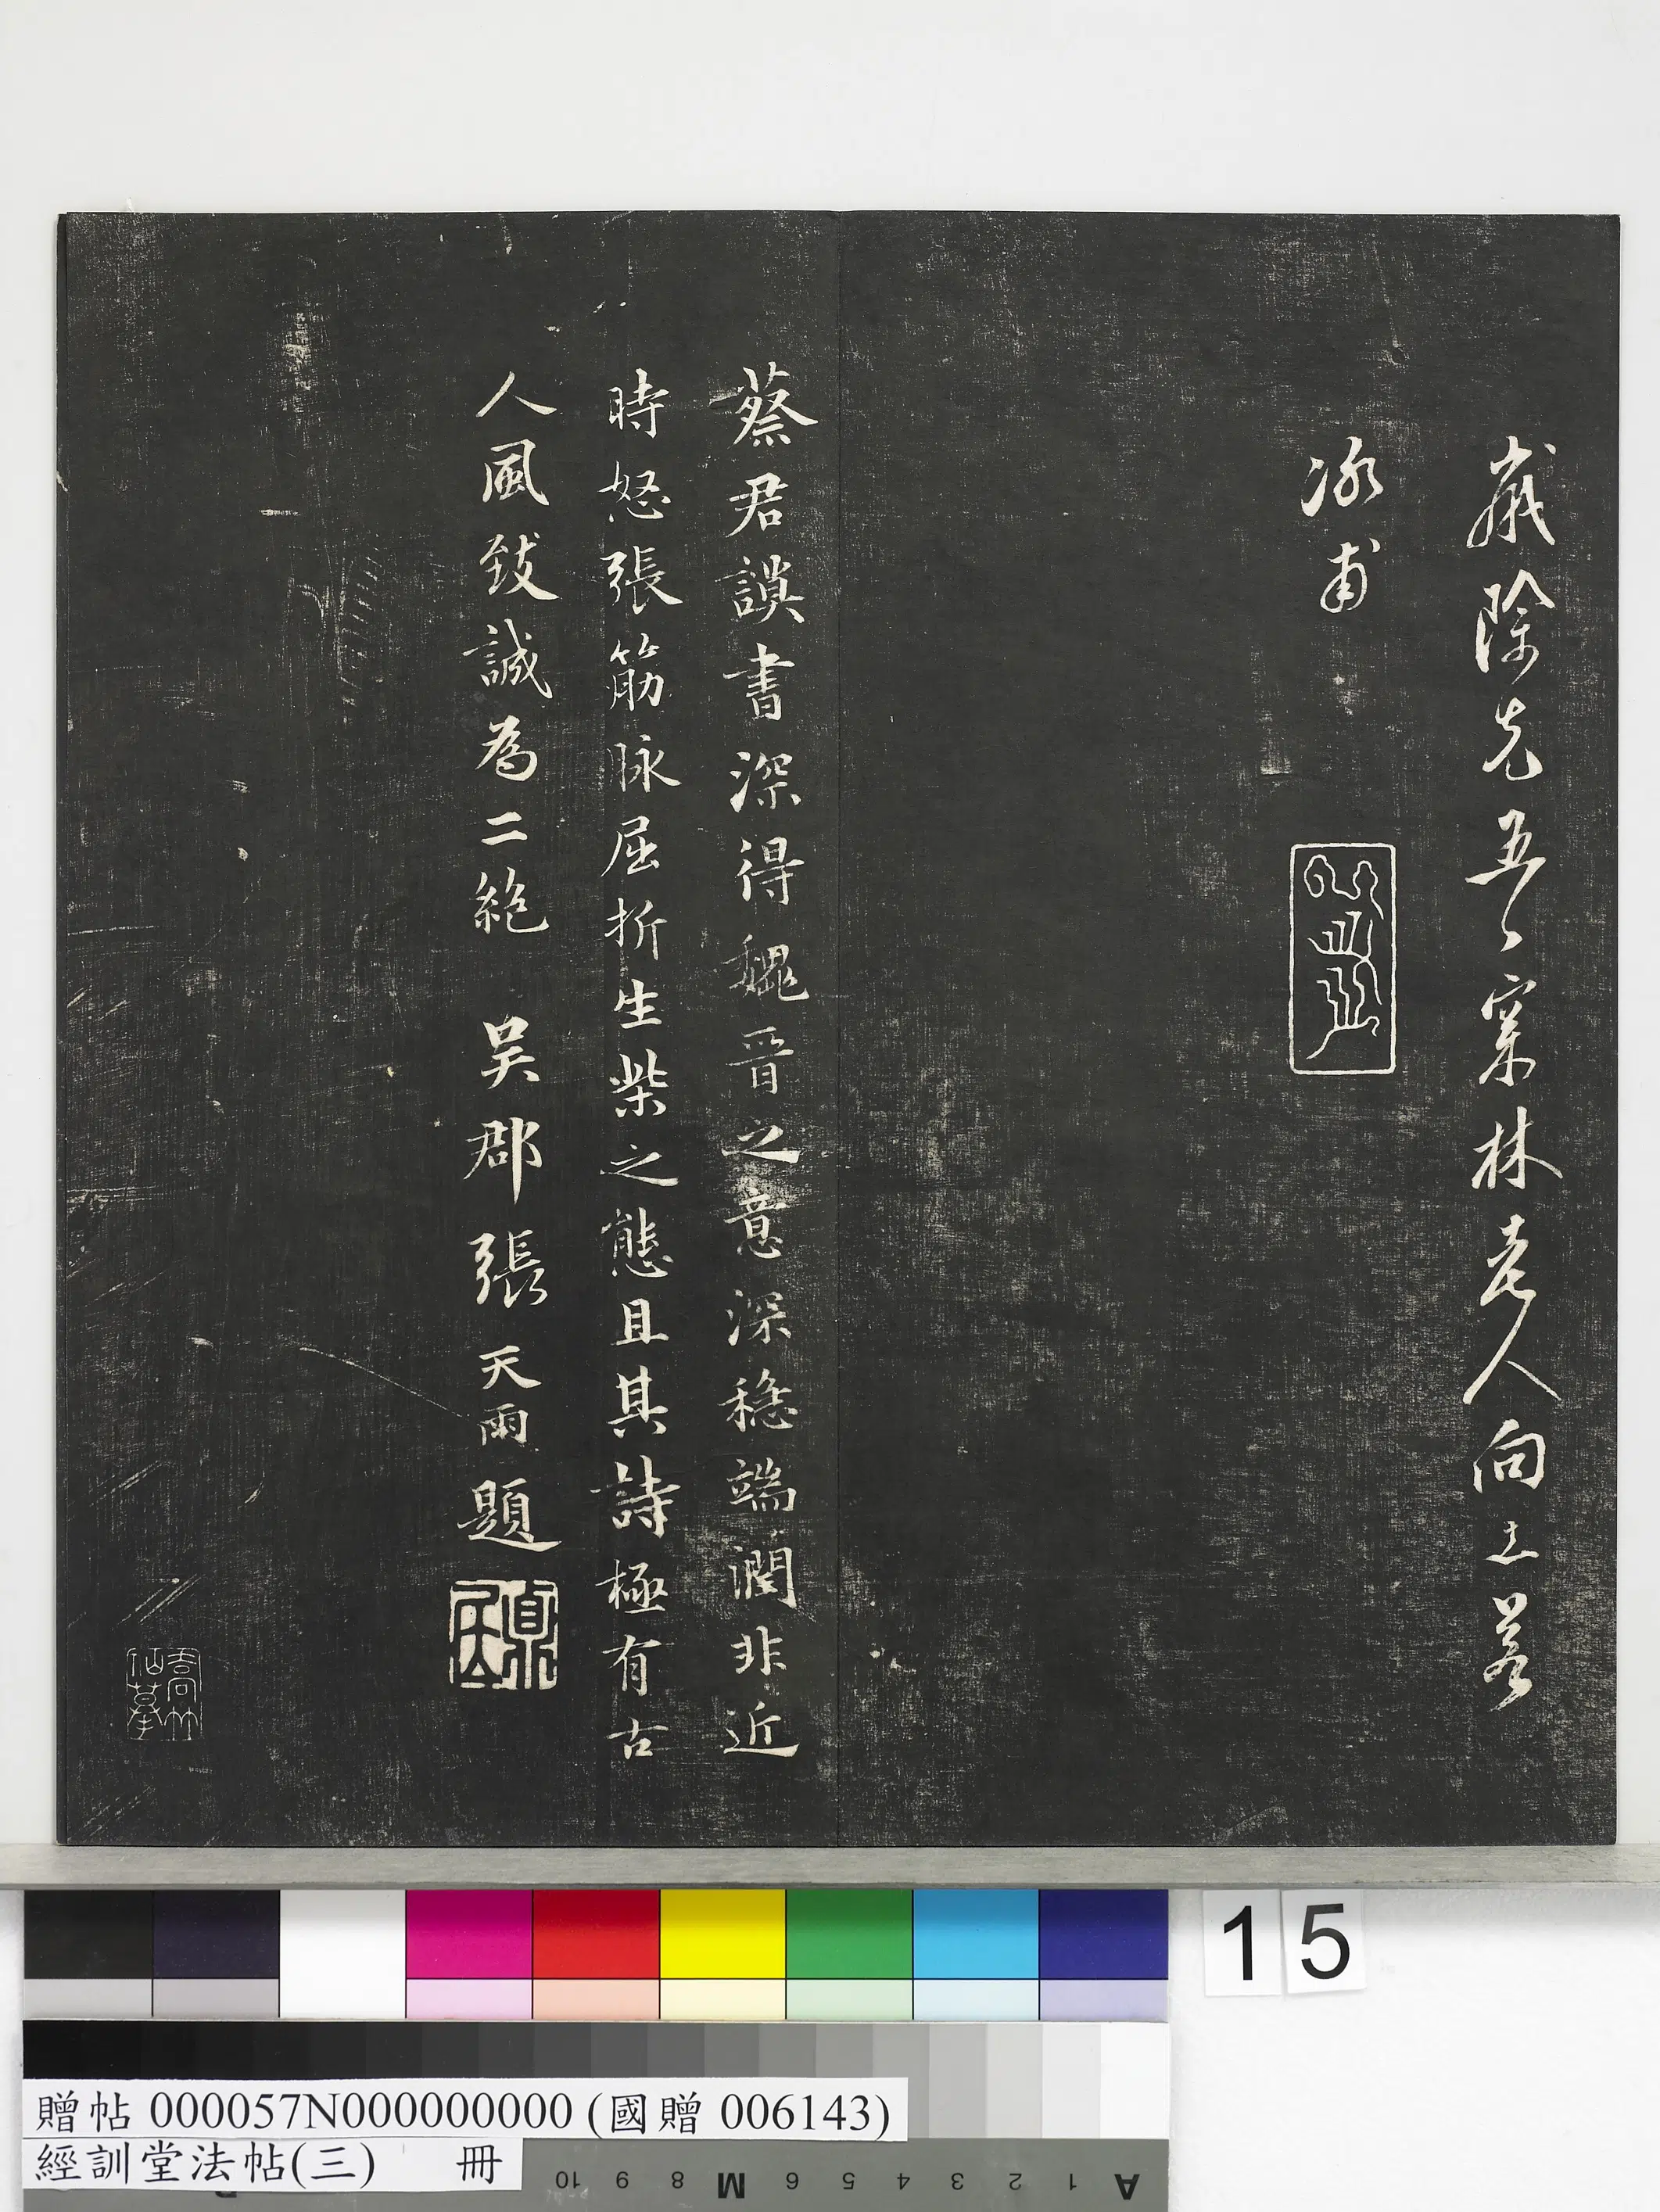 歲除先五日寀林老人向士若
冰甫
蔡君謨書深得魏晉之意深穩端潤非近
時怒張筋脉屈折生柴之態且其詩極有古
人風致誠為二絕 吳郡張天雨題
1 5
贈帖 000057N000000000 (國贈 006143)
經訓堂法帖(三) 冊
10 9 8 M 6 5 4 3 2 1 A